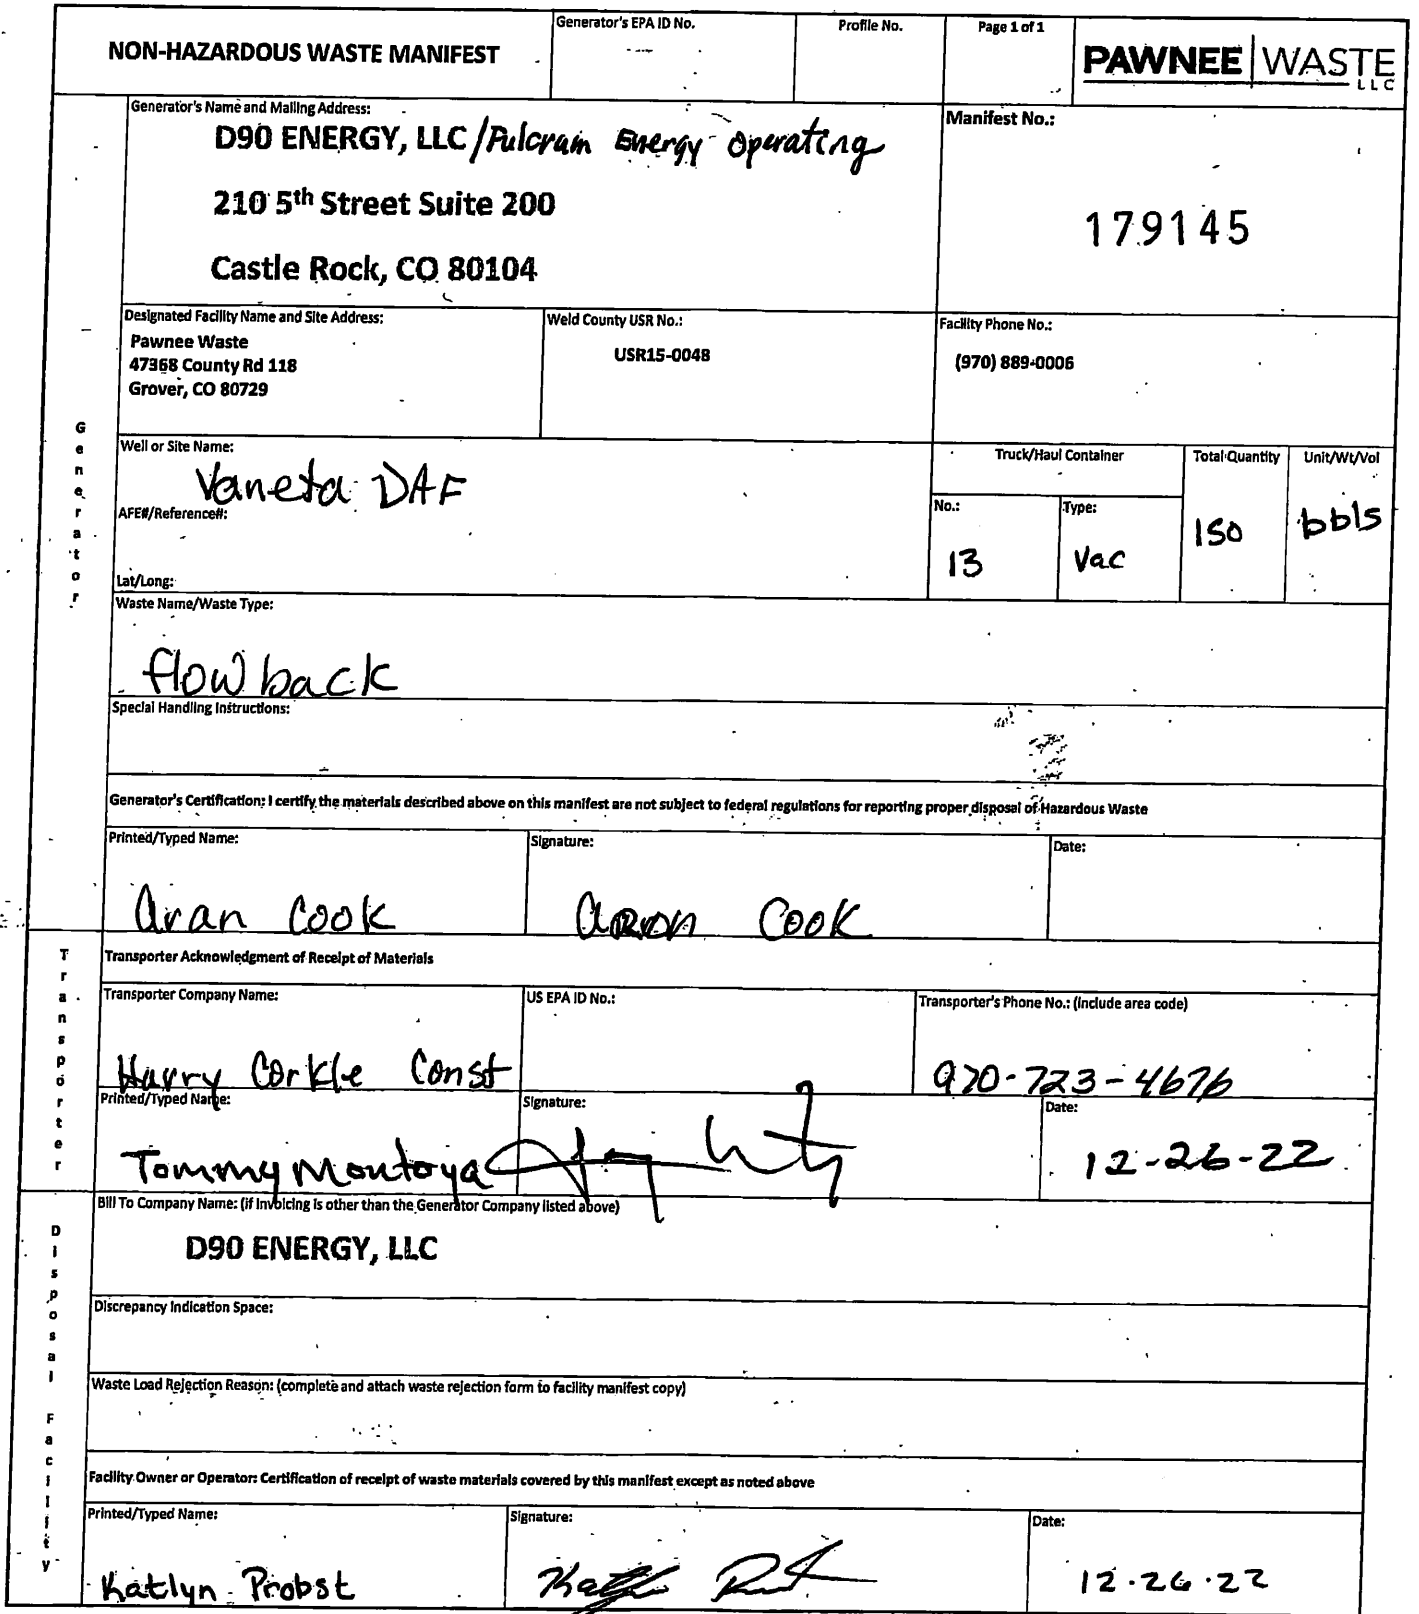 NON-HAZARDOUS WASTE MANIFEST
Generator's EPA ID No.
Profile No.
Page 1 of 1
PAWNEE WASTE
LLC
Generator's Name and Mailing Address:
D90 ENERGY, LLC /Fulcram Energy Operating
210 5th Street Suite 200
Castle Rock, CO 80104
Manifest No.:
179145
Designated Facility Name and Site Address:
Pawnee Waste
47368 County Rd 118
Grover, CO 80729
Weld County USR No.:
USR15-0048
Facility Phone No.:
(970) 889-0006
Generator
Well or Site Name:
Vaneta DAF
AFE#/Reference#:
Lat/Long:
Truck/Haul Container
No.:
13
Type:
Vac
Total Quantity
150
Unit/Wt/Vol
bbls
Waste Name/Waste Type:
flow back
Special Handling Instructions:
Generator's Certification: I certify the materials described above on this manifest are not subject to federal regulations for reporting proper disposal of Hazardous Waste
Printed/Typed Name:
aran Cook
Signature:
aaron Cook
Date:
Transporter
Transporter Acknowledgment of Receipt of Materials
Transporter Company Name:
Harry Corkle Const
US EPA ID No.:
Transporter's Phone No.: (include area code)
970-723-4676
Printed/Typed Name:
Tommy Montoya
Signature:
Date:
12-26-22
Disposal Facility
Bill To Company Name: (if invoicing is other than the Generator Company listed above)
D90 ENERGY, LLC
Discrepancy Indication Space:
Waste Load Rejection Reason: (complete and attach waste rejection form to facility manifest copy)
Facility Owner or Operator: Certification of receipt of waste materials covered by this manifest except as noted above
Printed/Typed Name:
Katlyn Probst
Signature:
Date:
12.26.22